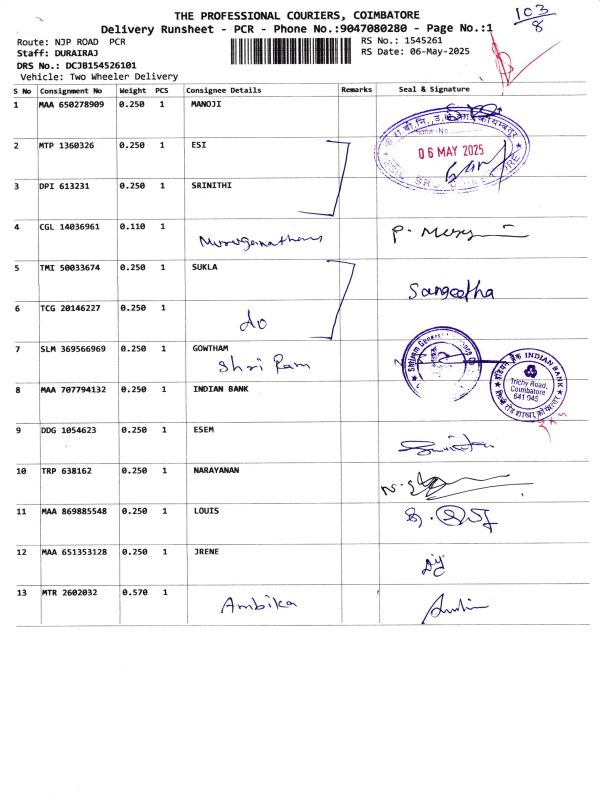 THE PROFESSIONAL COURIERS, COIMBATORE
Delivery Runsheet - PCR - Phone No.:9047080280 - Page No.:1
103/8
Route: NJP ROAD PCR
Staff: DURAIRAJ
DRS No.: DCJB154526101
Vehicle: Two Wheeler Delivery
RS No.: 1545261
RS Date: 06-May-2025
S No Consignment No Weight PCS Consignee Details Remarks Seal & Signature
1 MAA 650278909 0.250 1 MANOJI
2 MTP 1360326 0.250 1 ESI
06 MAY 2025
3 DPI 613231 0.250 1 SRINITHI
4 CGL 14036961 0.110 1 Muruganathan
5 TMI 50033674 0.250 1 SUKLA
Sangeetha
6 TCG 20146227 0.250 1 do
7 SLM 369566969 0.250 1 GOWTHAM
Shri Ram
8 MAA 707794132 0.250 1 INDIAN BANK
INDIAN BANK
Trichy Road,
Coimbatore
641 045
9 DDG 1054623 0.250 1 ESEM
10 TRP 638162 0.250 1 NARAYANAN
11 MAA 869885548 0.250 1 LOUIS
12 MAA 651353128 0.250 1 JRENE
13 MTR 2602032 0.570 1 Ambika